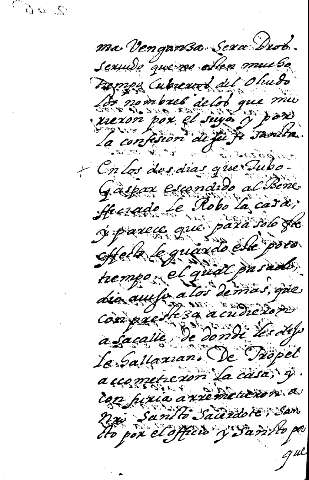 ma Venganza. Sera Dios
servido que no esten mucho
tiempo cubiertos del oluido
los nombres delos que mu
rieron por el suyo y por
la confesion de su fe santa
En los dos dias que tubo
Gaspar escondido al Bene
ficiado le Robo la casa,
y parece que para solo este
effecto le guardo este poco
tiempo, el qual pasado
dio auiso a los demas, que
con presteza acudieron
a la calle, de donde les dijo
le hallarian De Tropel
acometieron la casa, y
con furia arremetieron a
Nro Santo Sacerdote, San
to por el officio y Santo por
que